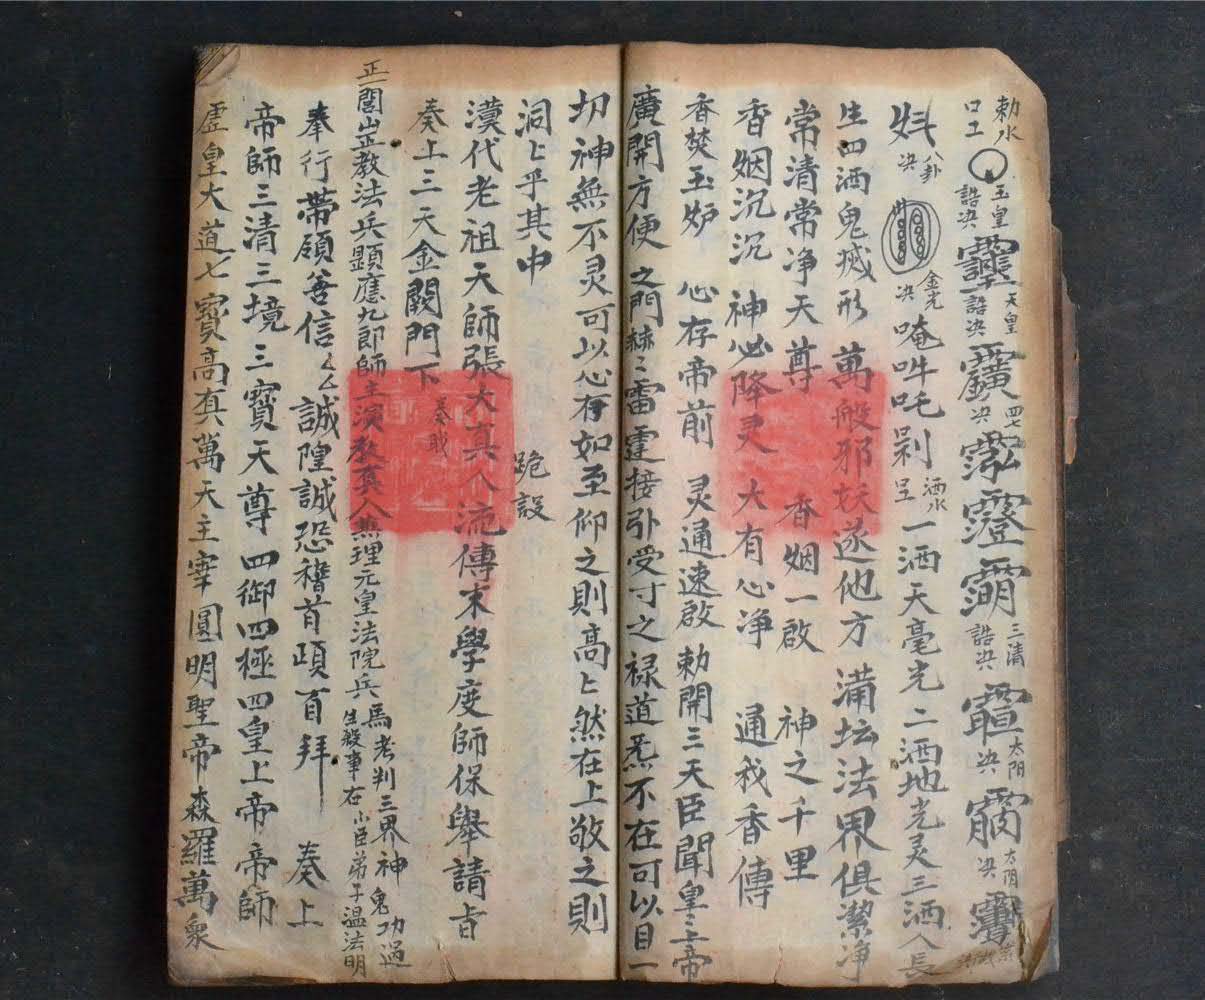 勅水
口工 玉皇 誥决 天皇 誥决 四七 决 三清 誥决 太阳 决 太阴 决
八卦 决 金光 决 唵吽吒 洒水 一洒天毫光二洒地光灵三洒人長
生四洒鬼滅形 萬般邪妖逐他方 满坛法界俱潔净
常清常净天尊 香烟一啟 神之千里
香烟沉沉 神必降灵 大有心净 通我香傳
香焚玉炉 心存帝前 灵通速啟 勅開三天臣聞皇〻上帝
廣開方便 之門赫〻雷霆接引受寸之禄道炁不在可以目一
切神無不灵可以心存如至仰之則高〻然在上敬之則
洞〻乎其中 跪設
漢代老祖天師張大真人流傳末學度師保舉請旨
奏上三天金闕門下
正一閭山正教法兵顕應九郎師主演教真人無理元皇法院兵馬考判三界神鬼功過
生殺事在小臣弟子温法明
奉行帶領善信 誠隍誠恐稽首頓百拜 奏上
帝師三清三境三寳天尊四御四極四皇上帝帝師
虚皇大道七寳高真萬天主宰圓明聖帝森羅萬衆